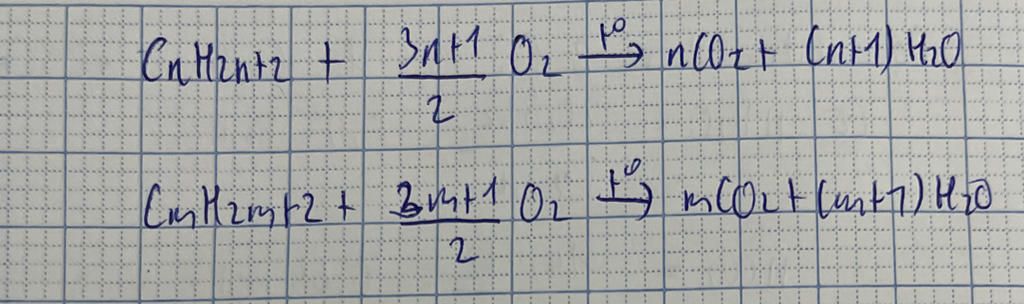 CnH2n+2 + 3n+1/2 O2 t⁰→ nCO2 + (n+1) H2O
CmH2m+2 + 3m+1/2 O2 t⁰→ mCO2 + (m+1) H2O